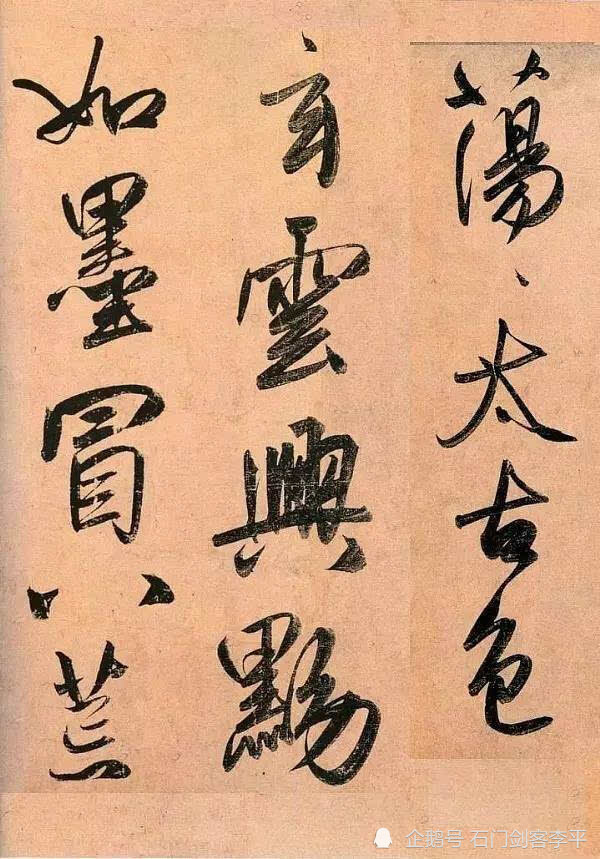 蕩、太古色
玄雲興
如墨冒八荒
企鹅号 石门剑客李平